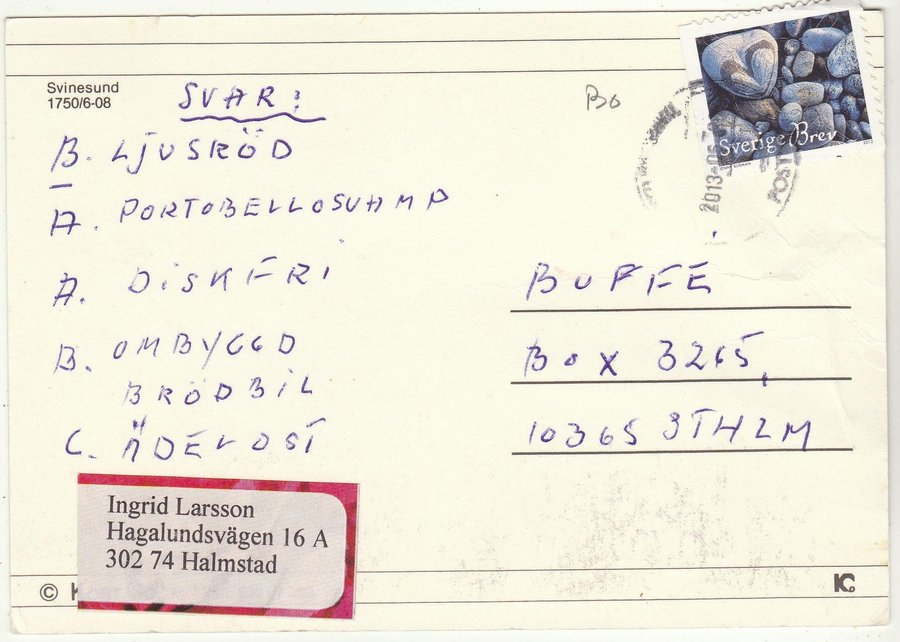 Svinesund
1750/6-08
SVAR:
B. LJUSRÖD
A. PORTOBELLOSVAMP
A. DISKFRI
B. OMBYGGD
BRÖDBIL
C. ÄDELOST
Ingrid Larsson
Hagalundsvägen 16 A
302 74 Halmstad
©
Bo
Sverige Brev
2013
2013-05
POST
BUFFE
BOX 3265,
10365 STHLM